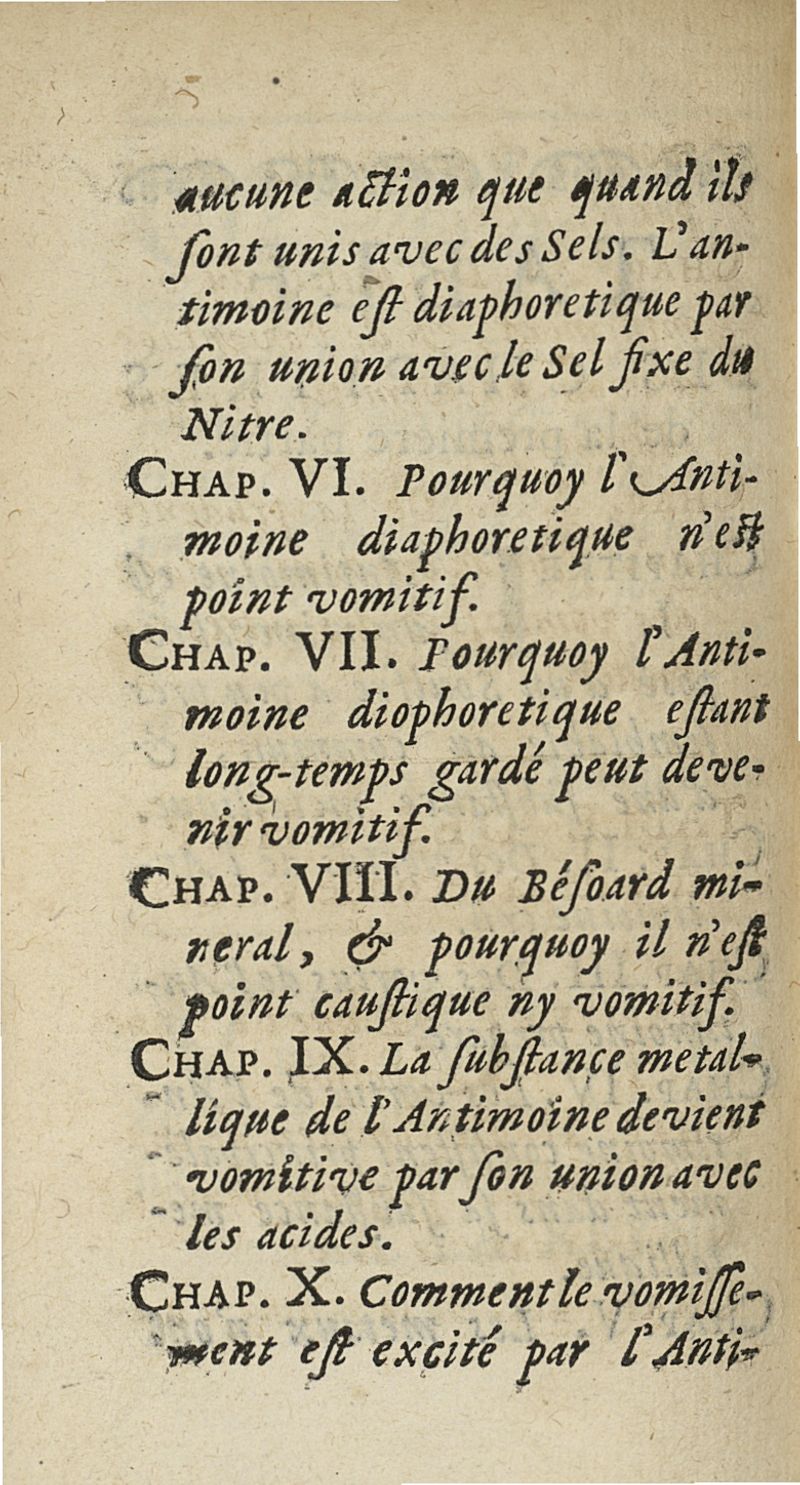 aucune action que quand ils
ſont unis avec des Sels. L'an-
timoine eſt diaphoretique par
ſon union avec le Sel fixe du
Nitre.
CHAP. VI. Pourquoy l'Anti-
moine diaphoretique n'eſt
point vomitif.
CHAP. VII. Pourquoy l'Anti-
moine diophoretique eſtant
long-temps gardé peut deve-
nir vomitif.
CHAP. VIII. Du Béſoard mi-
neral, & pourquoy il n'eſt
point cauſtique ny vomitif.
CHAP. IX. La ſubſtance metal-
lique de l'Antimoine devient
vomitive par ſon union avec
les acides.
CHAP. X. Comment le vomiſſe-
ment eſt excité par l'Anti-